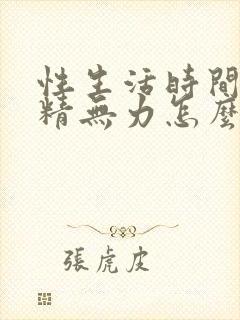 性生活時間
精無力怎麼
張虎皮